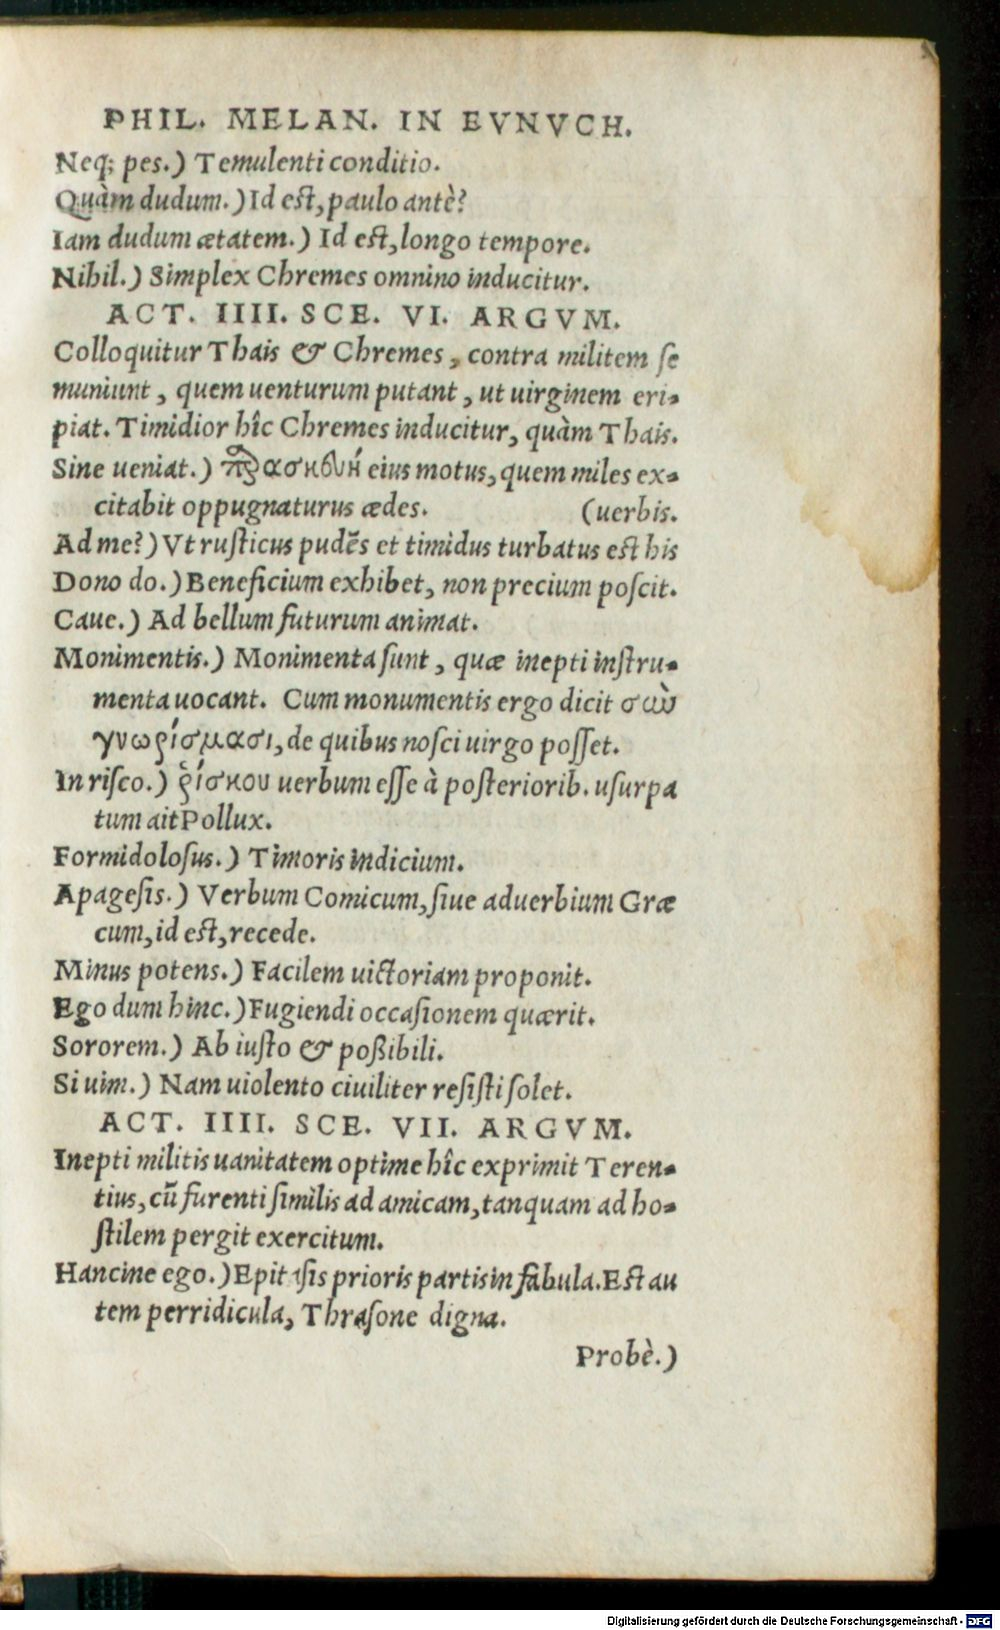 PHIL. MELAN. IN EVNVCH.
Neq; pes.) Temulenti conditio.
Quàm dudum.) Id est, paulo antè?
Iam dudum ætatem.) Id est, longo tempore.
Nihil.) Simplex Chremes omnino inducitur.
ACT. IIII. SCE. VI. ARGVM.
Colloquitur Thais & Chremes, contra militem ſe
muniunt, quem uenturum putant, ut uirginem eri-
piat. Timidior hîc Chremes inducitur, quàm Thais.
Sine ueniat.) παρασκευὴ eius motus, quem miles ex-
citabit oppugnaturus ædes. (uerbis.
Ad me?) Vt ruſticus pudẽs et timidus turbatus est his
Dono do.) Beneficium exhibet, non precium poſcit.
Caue.) Ad bellum futurum animat.
Monimentis.) Monimenta ſunt, quæ inepti inſtru-
menta uocant. Cum monumentis ergo dicit σὺν
γνωρίσμασι, de quibus noſci uirgo poſſet.
In riſco.) ῥίσκου uerbum eſſe à poſteriorib. uſurpa
tum ait Pollux.
Formidoloſus.) Timoris indicium.
Apageſis.) Verbum Comicum, ſiue aduerbium Græ
cum, id est, recede.
Minus potens.) Facilem uictoriam proponit.
Ego dum hinc.) Fugiendi occaſionem quærit.
Sororem.) Ab iuſto & poßibili.
Si uim.) Nam uiolento ciuiliter reſiſti ſolet.
ACT. IIII. SCE. VII. ARGVM.
Inepti militis uanitatem optime hîc exprimit Teren-
tius, cũ furenti ſimilis ad amicam, tanquam ad ho-
ſtilem pergit exercitum.
Hancine ego.) Epitaſis prioris partis in fabula. Est au
tem perridicula, Thraſone digna.
Probè.)
Digitalisierung gefördert durch die Deutsche Forschungsgemeinschaft - DFG